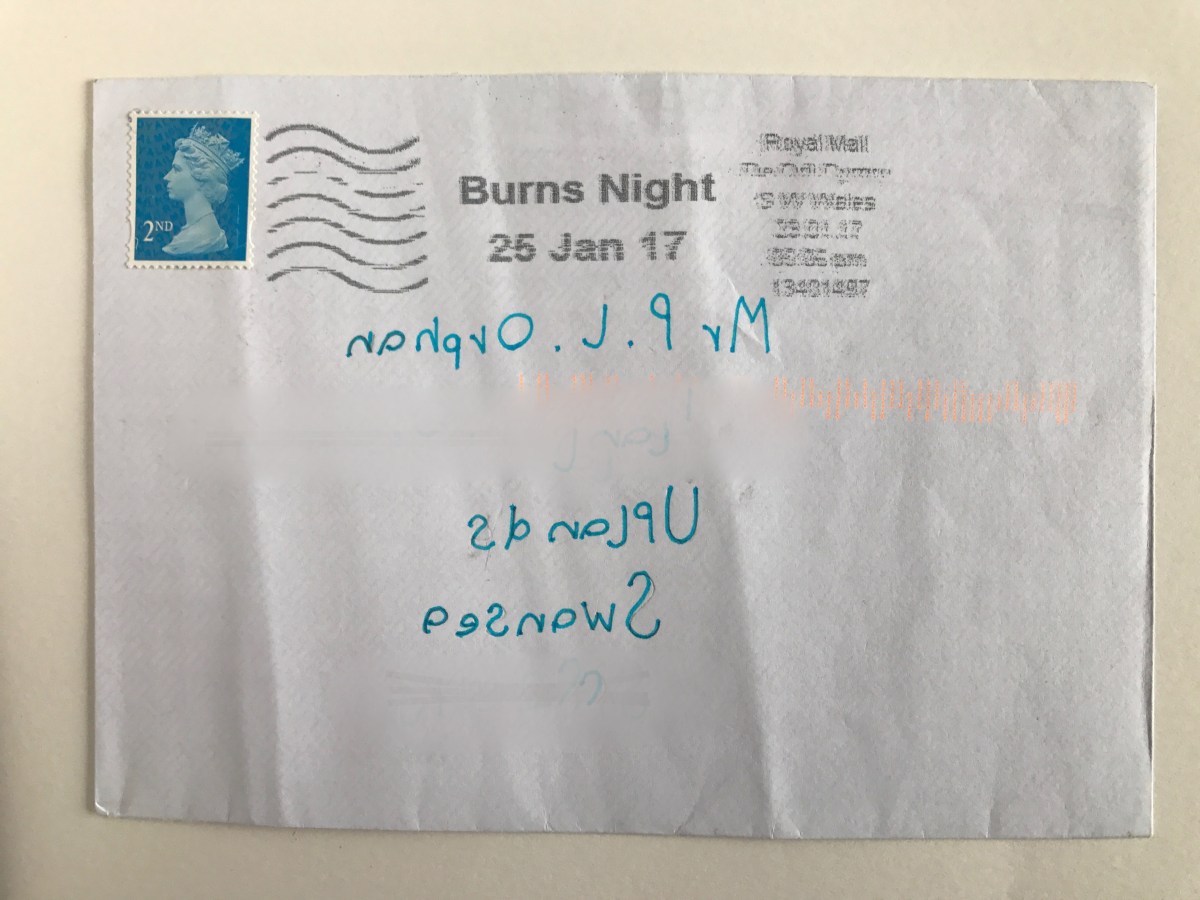 2ND
Burns Night
25 Jan 17
Royal Mail
S W Wales
13401497
Mr P. J. Orphan
Uplands
Swansea